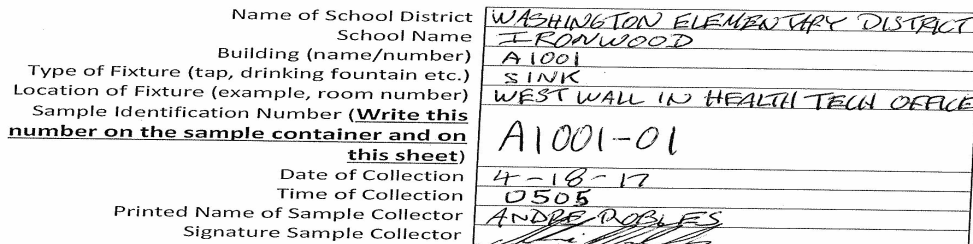 Name of School District WASHINGTON ELEMENTARY DISTRICT
School Name IRONWOOD
Building (name/number) A1001
Type of Fixture (tap, drinking fountain etc.) SINK
Location of Fixture (example, room number) WEST WALL IN HEALTH TECH OFFICE
Sample Identification Number (Write this
number on the sample container and on
this sheet) A1001-01
Date of Collection 4-18-17
Time of Collection 0505
Printed Name of Sample Collector ANDRE ROBLES
Signature Sample Collector